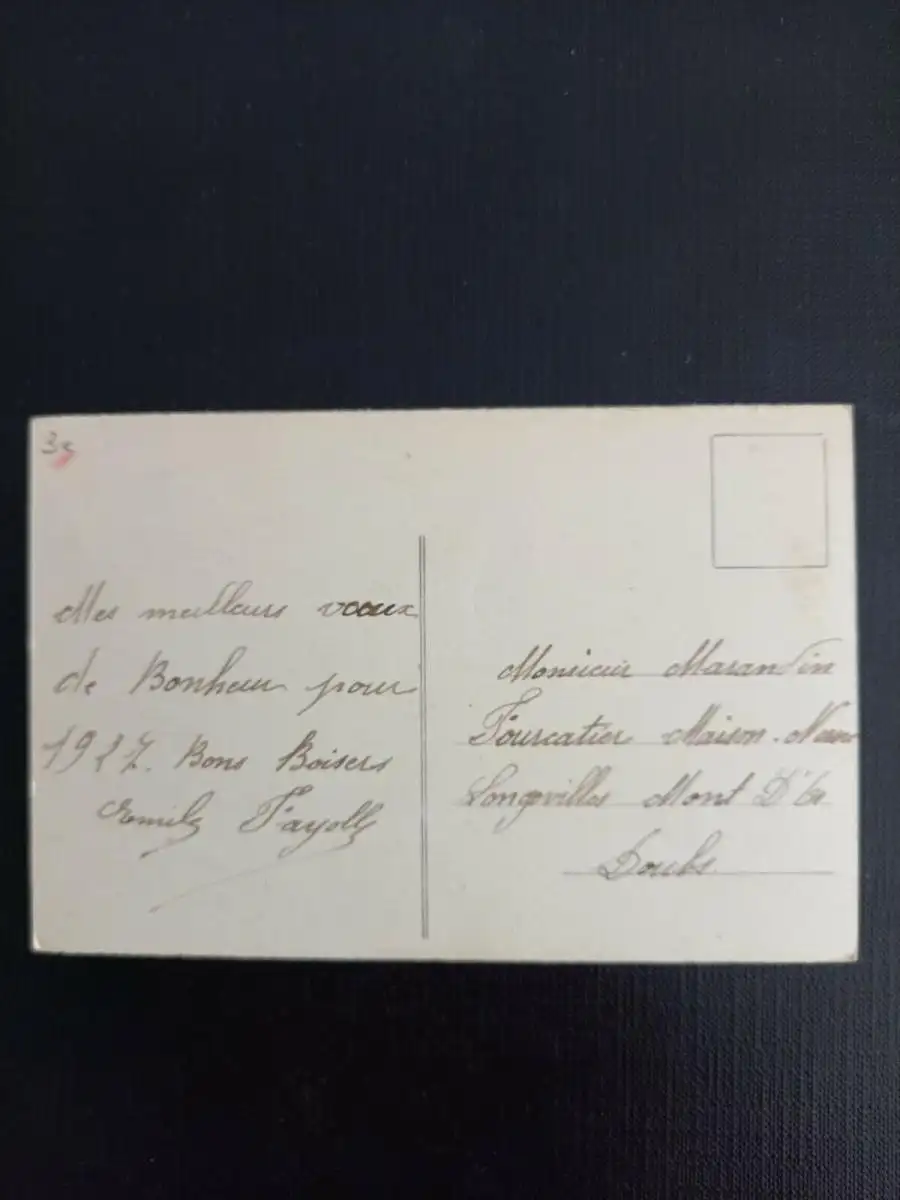 3
Mes meilleurs voeux
de Bonheur pour
1927. Bons Boisers
Emile Fayolle
Monsieur Marandin
Fourcatier Maison-Neuve
Longevilles Mont D'Or
Doubs